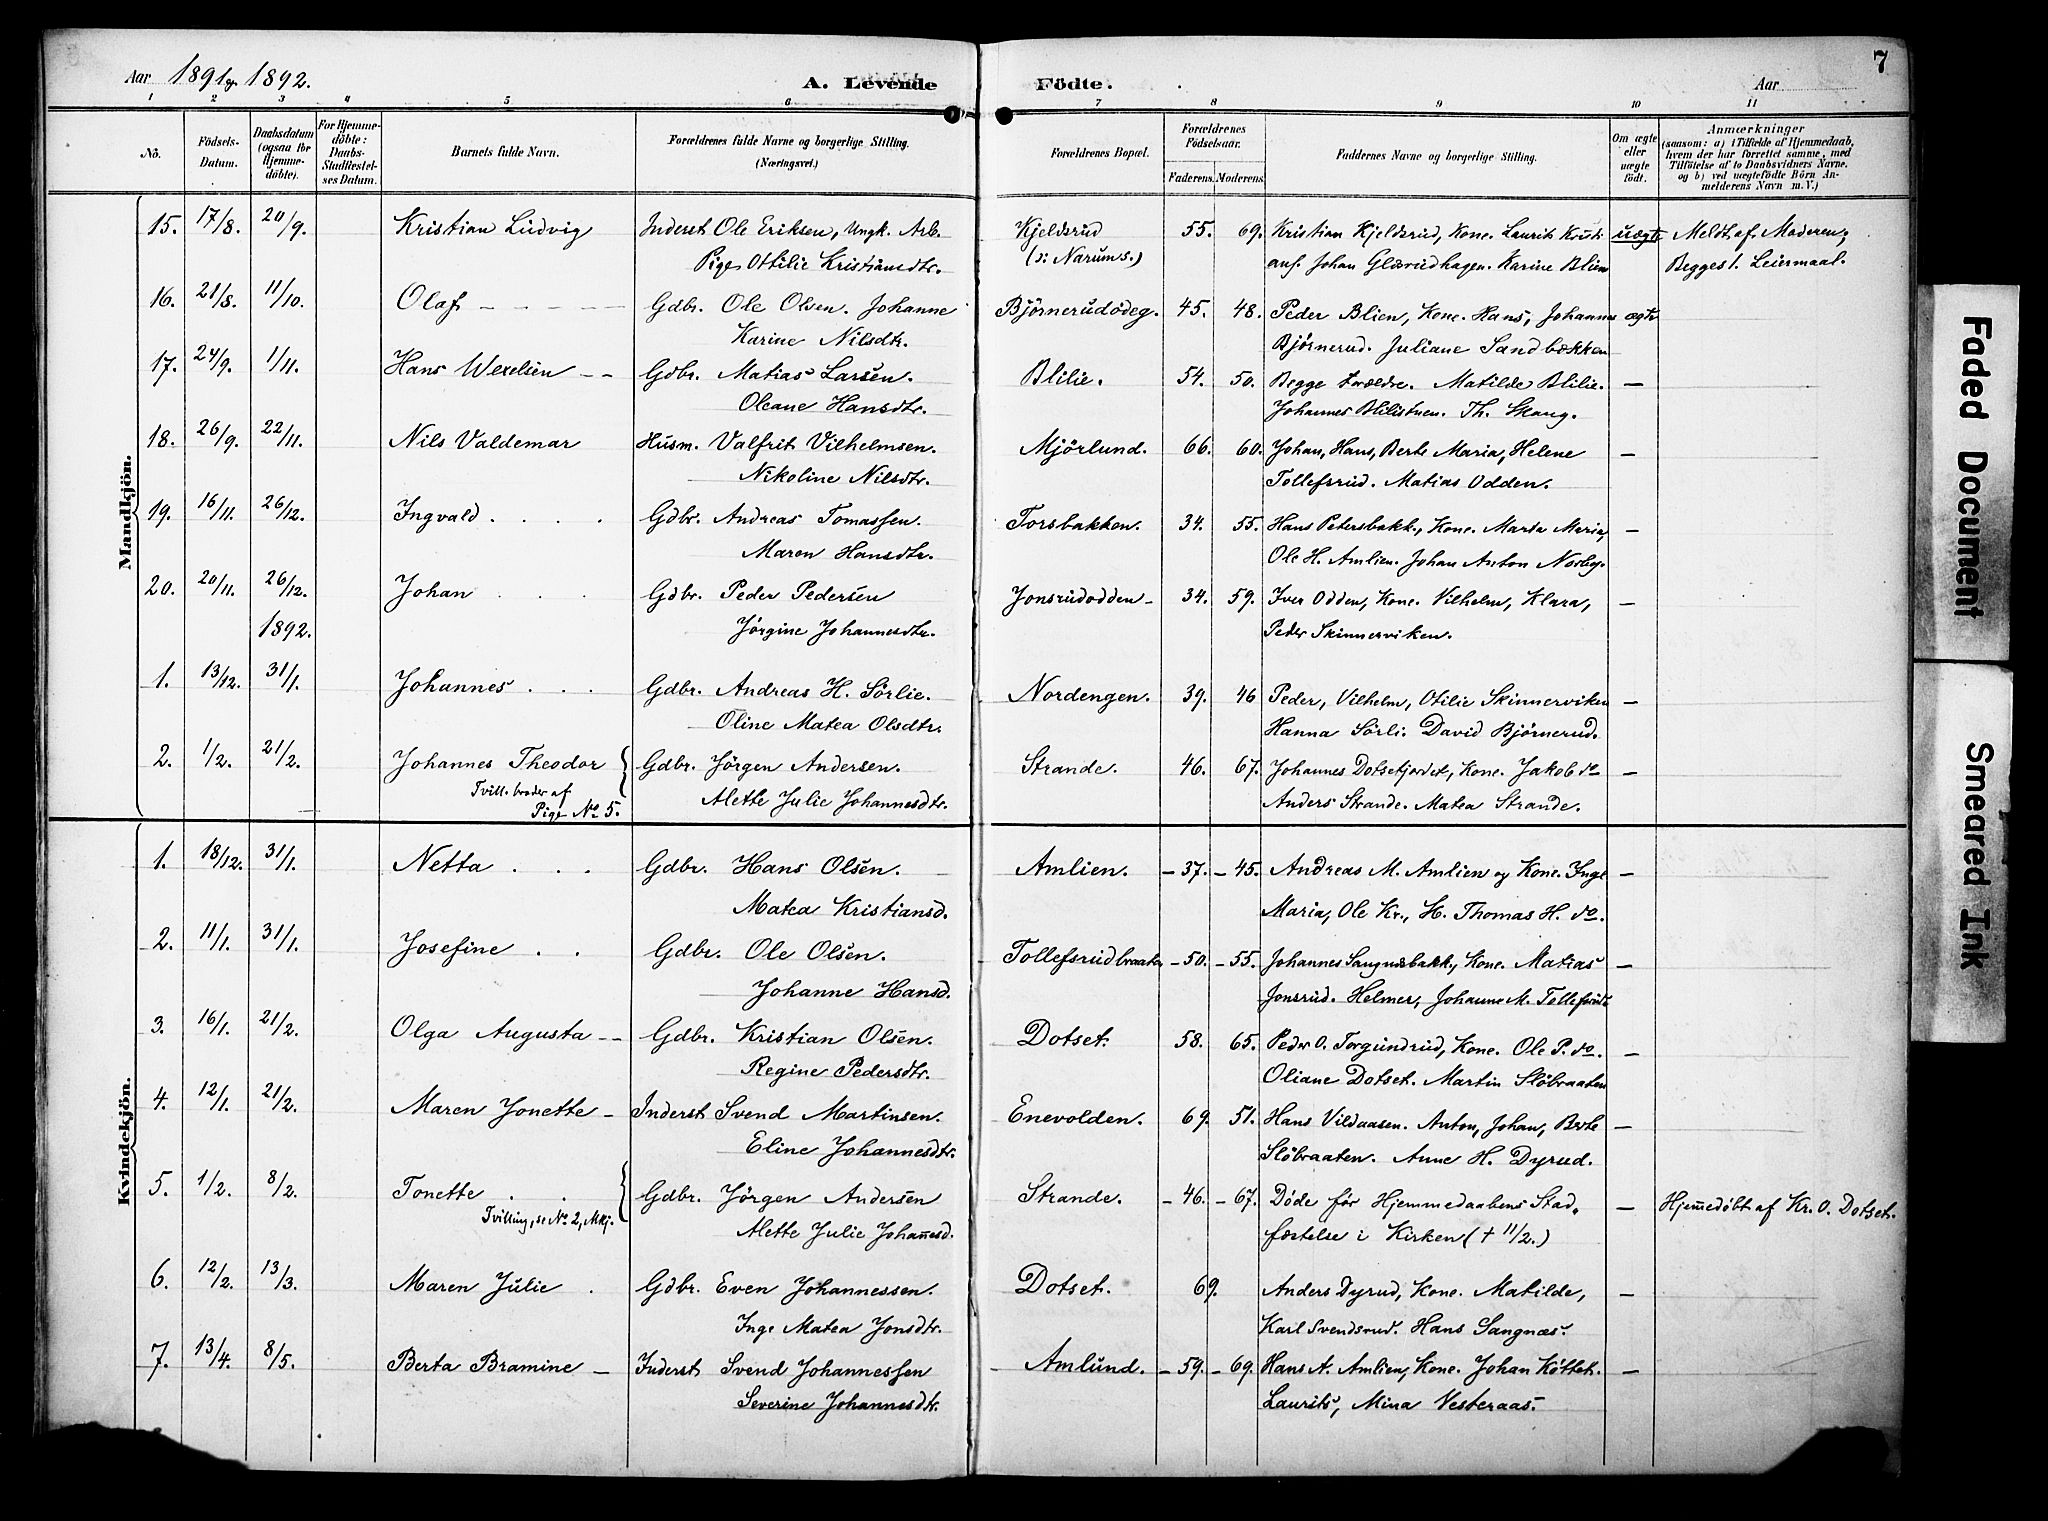 7
Aar 1891 og 1892. A. Levende Födte. Aar
1 2 3 4 5 6 7 8 9 10 11
No. Födsels-Datum. Daabsdatum (ogsaa for Hjemme-döbte). For Hjemme-döbte: Daabs-Stadfæstel-ses Datum. Barnets fulde Navn. Forældrenes fulde Navne og borgerlige Stilling. (Næringsvei.) Forældrenes Bopæl. Forældrenes Födselsaar. Faderens. Moderens. Faddernes Navne og borgerlige Stilling. Om ægte eller uægte födt. Anmærkninger (saasom: a) i Tilfælde af Hjemmedaab, hvem der har forrettet samme, med Tilföielse af to Daabsvidners Navne. og b) ved uægtefödte Börn An-melderens Navn m. V.)
Mandkjön.
15. 17/8. 20/9. Kristian Ludvig Inderst Ole Eriksen, Ungk. Arb. Kjeldsrud 55. 69. Kristian Kjeldsrud, Kone. Laurits uægte Meldt af Moderen;
Pige Ottilie Kristiansdtr. (o: Narums.) Johan Glæserudhagen. Karine Blien Begges 1. Leiermaal.
16. 21/8. 11/10. Olaf Gdbr. Ole Olsen. Johanne Bjørnerudødeg. 45. 48. Peder Blien, Kone. Hans, Johannes ægte
Karine Nilsdtr. Bjørnerud. Juliane Sandbækken
17. 24/9. 1/11. Hans Wexelsen Gdbr. Matias Larsen. Blilie. 54. 50. Begge Forældre. Matilde Blilie. —
Oleane Hansdtr. Johannes Blilistuen. Th. Skaug.
18. 26/9. 22/11. Nils Valdemar Husm. Valfrit Vilhelmsen. Mjörlund. 66. 60. Johan, Hans, Berte Maria, Helene —
Nikoline Nilsdtr. Tollefsrud. Matias Odden.
19. 16/11. 26/12. Ingvald Gdbr. Andreas Tomassen. Torsbakken. 34. 55. Hans Petersbakk., Kone. Marta Maria, —
Maren Hansdtr. Ole H. Amlien. Johan Anton Norby.
20. 20/11. 26/12. Johan Gdbr. Peder Pedersen Jonsrudodden 34. 59. Iver Odden, Kone. Vilhelm, Klara, —
1892. Jørgine Johannesdtr. Peder Skinnerviken.
1. 13/12. 31/1. Johannes Gdbr. Andreas H. Sörlie. Nordengen. 39. 46 Peder, Vilhelm, Otilie Skinnerviken —
Oline Matea Olsdtr. Hanna Sörli. David Bjørnerud.
2. 1/2. 21/2. Johannes Theodor Gdbr. Jörgen Andersen. Strande. 46. 67. Johannes Dotsetjordet, Kone. Jakob do —
Tvill. broder af Alette Julie Johannesdtr. Anders Strande. Matea Strande.
Pige No 5.
Kvindekjön.
1. 18/12. 31/1. Netta Gdbr. Hans Olsen. Amlien. 37. 45. Andreas M. Amlien og Kone. Inge —
Matea Kristiansd. Maria, Ole Kr., H. Thomas H. do.
2. 11/1. 31/1. Josefine Gdbr. Ole Olsen. Tollefsrudbraaten 50. 55. Johannes Sangnæsbakk., Kone. Matias —
Johanne Hansd. Jonsrud. Helmer, Johanne M. Tollefsrud.
3. 16/1. 21/2. Olga Augusta Gdbr. Kristian Olsen. Dotset. 58. 65. Peder O. Torgundrud, Kone. Ole P. do. —
Regine Pedersdtr. Oliane Dotset. Martin Slöbraaten
4. 12/1. 21/2. Maren Jonette Inderst Svend Martinsen. Enevolden. 69. 51. Hans Vildaasen. Anton, Johan, Berte —
Eline Johannesdtr. Slöbraaten. Anne H. Dyrud.
5. 1/2. 8/2. Tonette Gdbr. Jörgen Andersen Strande. 46. 67. Døde før Hjemmedaabens Stad- — Hjemmedøbt af Kr. O. Dotset.
Tvilling, se No 2, Mkj. Alette Julie Johannesd. fæstelse i Kirken († 11/2.)
6. 12/2. 13/3. Maren Julie Gdbr. Even Johannessen. Dotset. 69. Anders Dyrud, Kone. Matilde, —
Inge Matea Jonsdtr. Karl Svendsrud. Hans Sangnæs.
7. 13/4. 8/5. Berta Bramine Inderst Svend Johannessen Amlund. 59. 69. Hans A. Amlien, Kone. Johan Köttet. —
Severine Johannesdtr. Laurits, Mina Vesteraas.
Faded Document
Smeared Ink